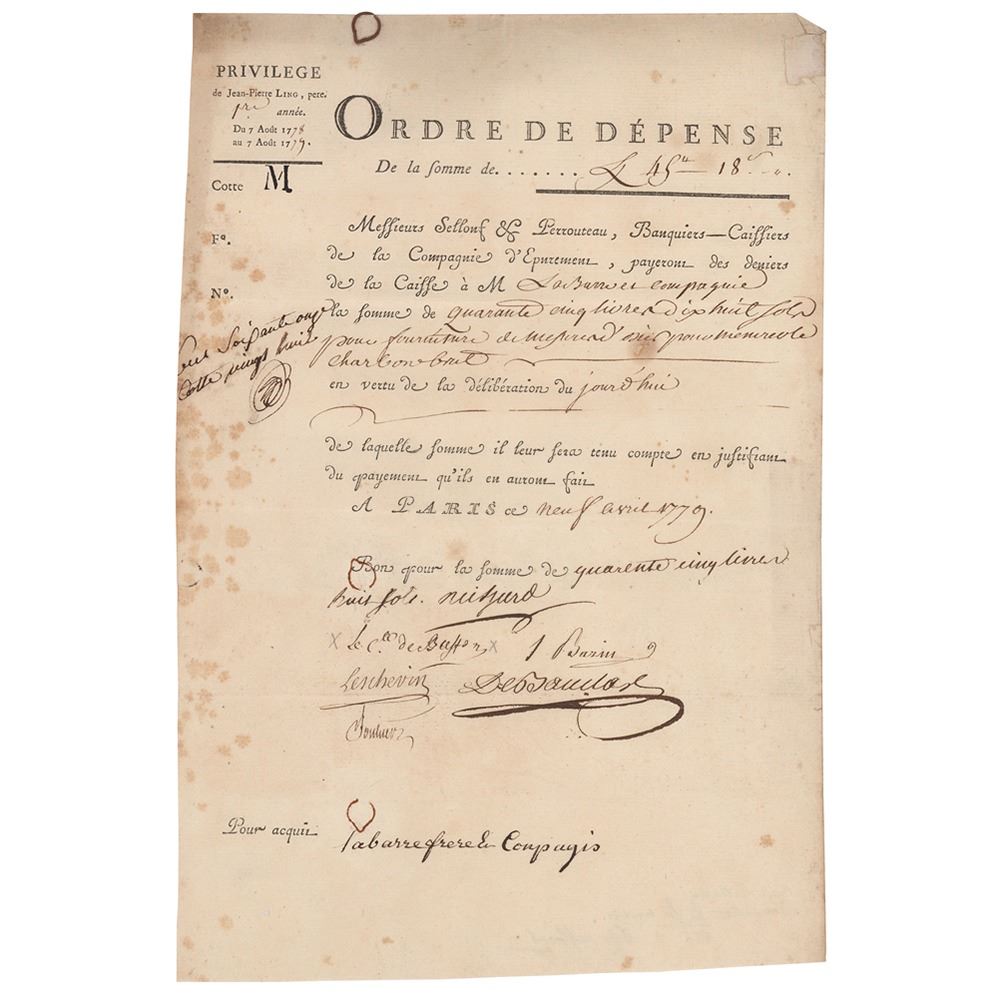 PRIVILEGE
de Jean-Pierre LING, pere.
1re année.
Du 7 Août 1778
au 7 Août 1779.
Cotte M
Fo.
No.
ORDRE DE DÉPENSE
De la somme de. . . . . . . £ 45 18 s
Messieurs Sellonf & Perrouteau, Banquiers-Caissiers
de la Compagnie d'Epurement, payeront des deniers
de la Caisse à M LaBarre et compagnie
la somme de quarante cinq livres dix huit sols
pour fourniture de
charbon
en vertu de la délibération du jourd'hui
cent Soixante onze
Cotte vingt huit
de laquelle somme il leur sera tenu compte en justifiant
du payement qu'ils en auront fait
A PARIS ce neuf avril 1779.
Bon pour la somme de quarente cinq livres
huit sols.
x Le Cte de Buffon x
Bazin
Leschevin
Pour acquit
labarre frere & Conpagis